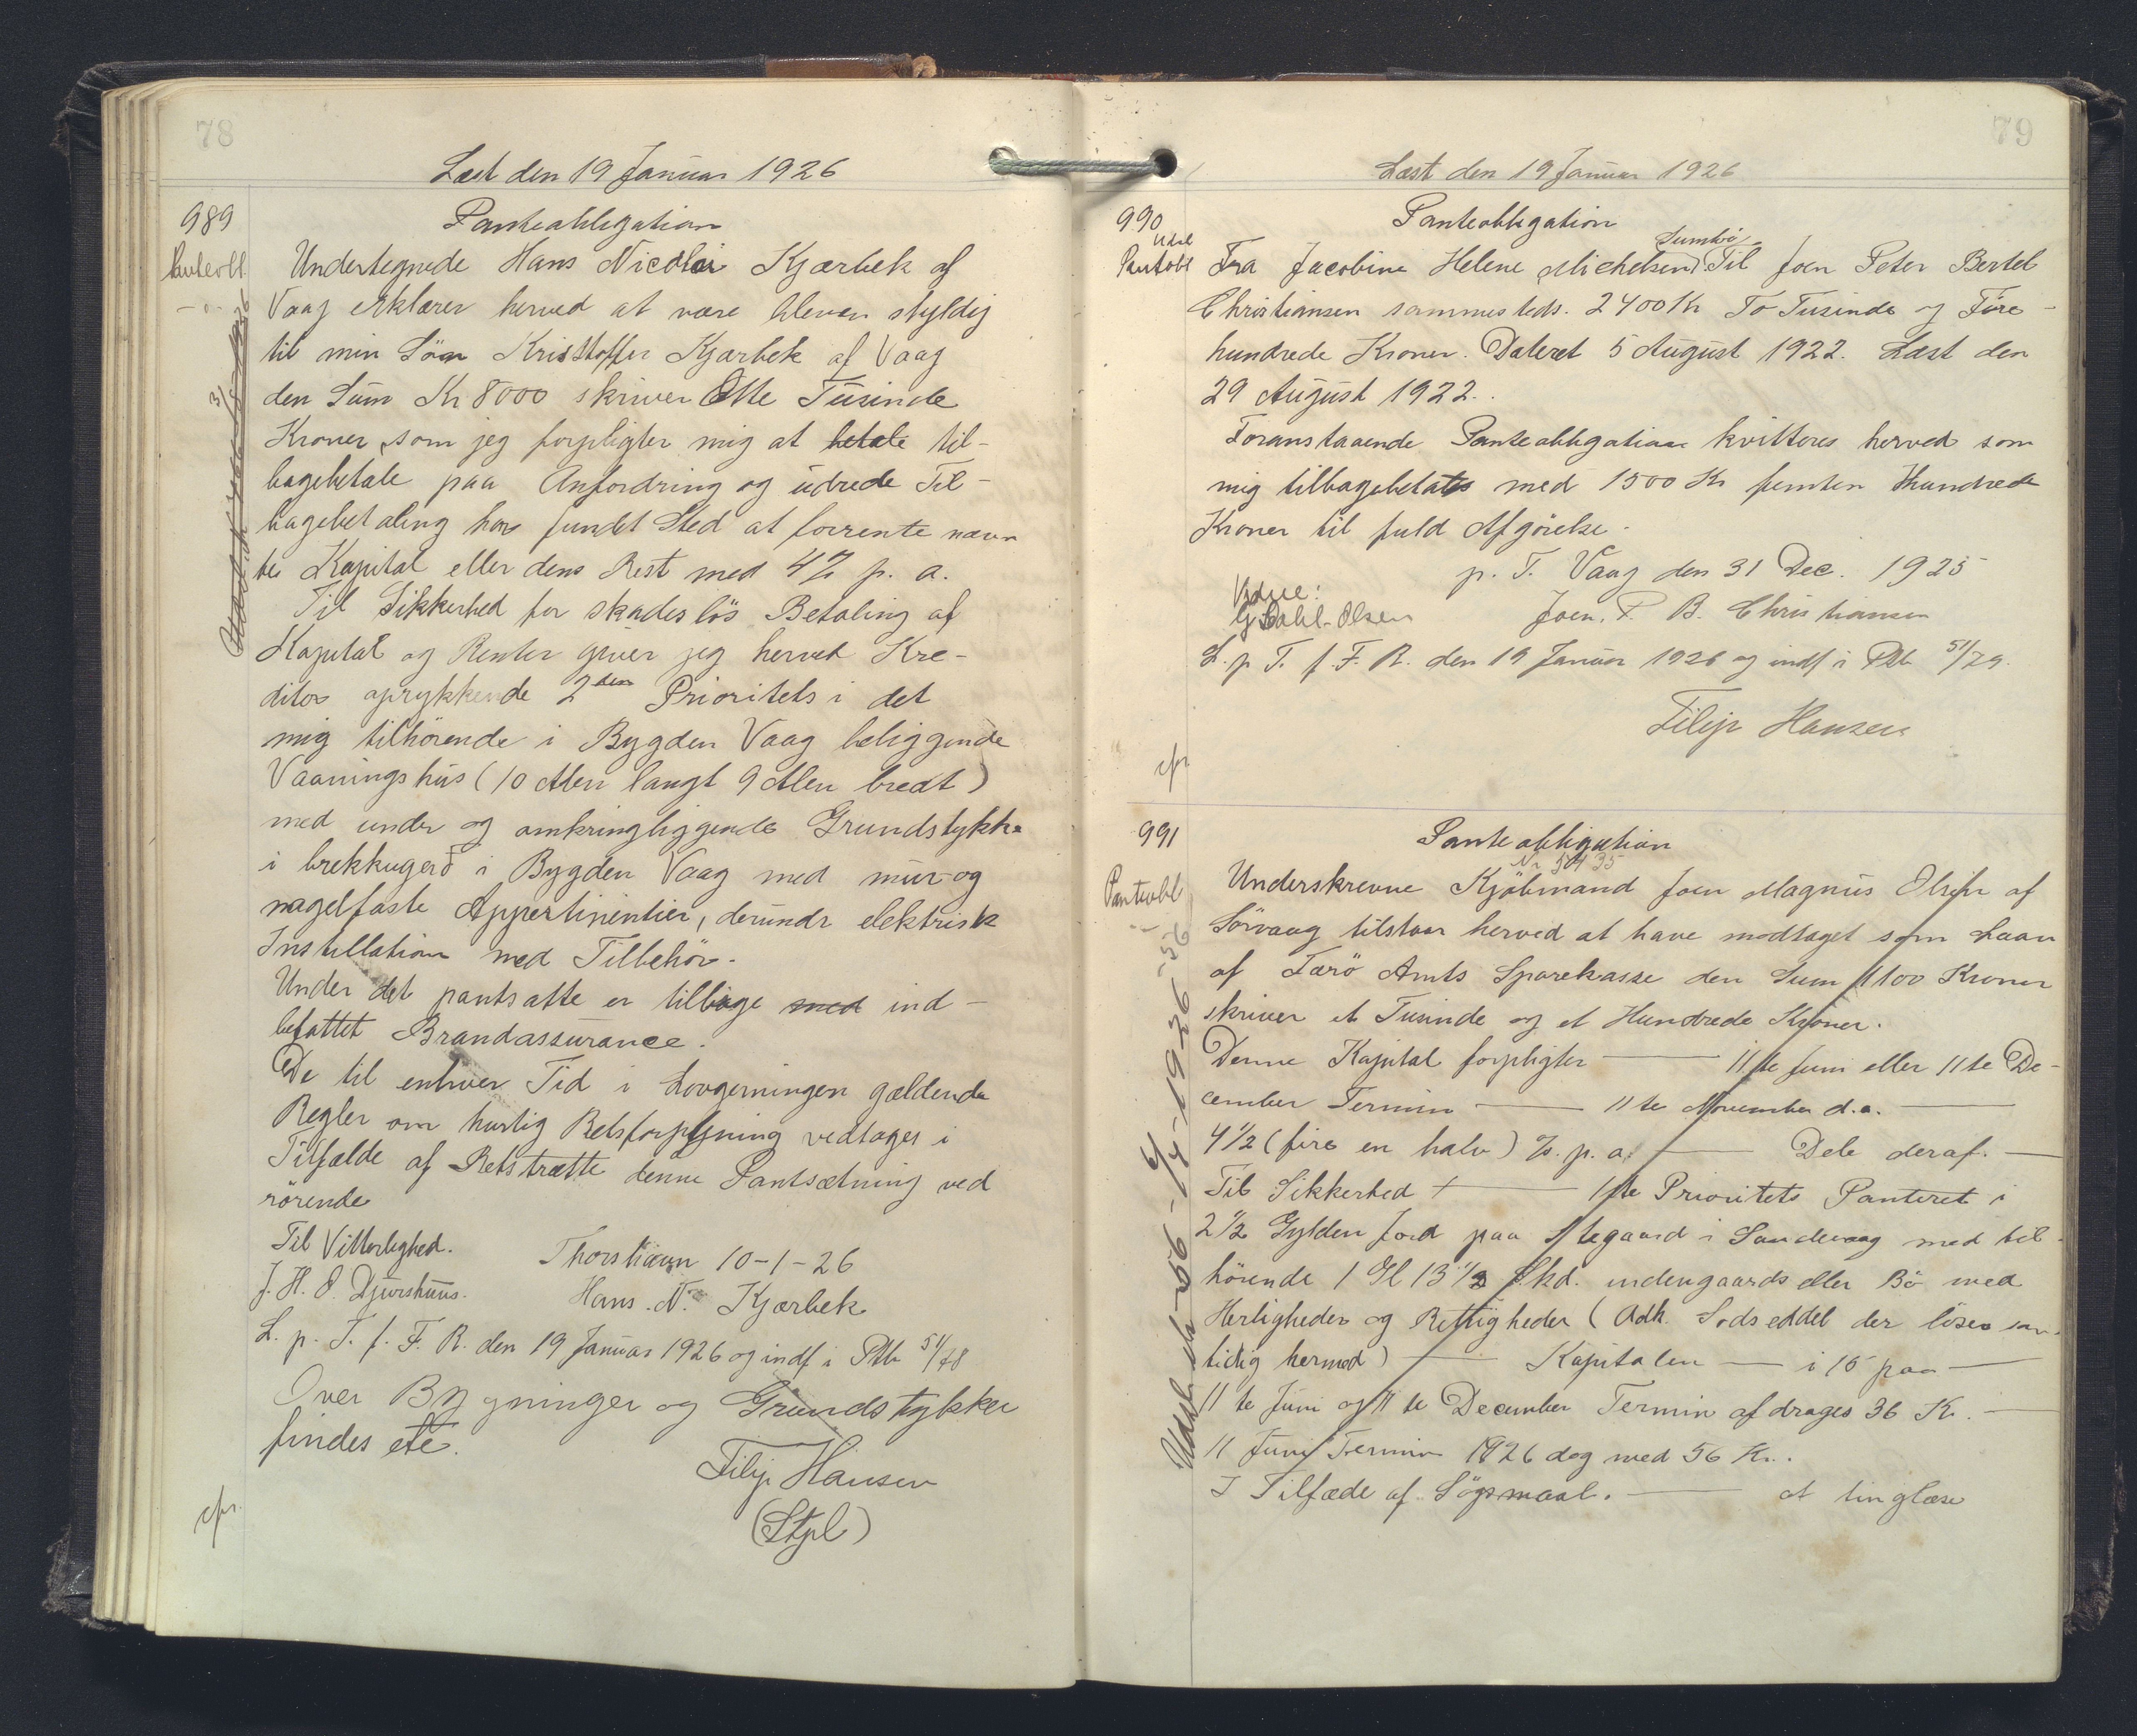 78
Læst den 19 Januar 1926
989
Panteobligation
Panteobl
Undertegnede Hans Nicolai Kjærbek af
Vaag erklærer herved at være bleven skyldig
til min Sön Kristoffer Kjærbek af Vaag
den Sum Kr 8000 skriver Otte Tusinde
Kroner, som jeg forpligter mig at betale til-
bagebetale paa Anfordring og udrede Til-
bagebetaling har fundet Sted at forrente nævn
te Kapital eller dens Rest med 4% p. a.
Til Sikkerhed for skadeslös Betaling af
Kapital og Renter giver jeg herved Kre-
ditor oprykkende 2den Prioritets i det
mig tilhörende i Bygden Vaag beliggende
Vaaningshus (10 Alen langt 9 Alen bredt)
med under og omkringliggende Grundstykke
i brekkugerð i Bygden Vaag med mur- og
nagelfaste Appertinentier, derundr elektrisk
Installation med Tilbehör.
Under det pantsatte er tillige med ind-
befattet Brandassurance.
De til enhver Tid i Lovgivningen gældende
Regler om hurtig Retsforfølgning vedtages i
Tilfælde af Retstrætte denne Pantsætning ved
rörende
Til Vitterlighed.
Thorshavn 10-1-26
J. H. O. Djurhuus.
Hans. N. Kjærbek
L. p. T. f. F. R. den 19 Januar 1926 og indf i Ptb 51/78
Over Bygninger og Grundstykker
findes ete.
Filip Hansen
(Stpl)
cfr.
79
Læst den 19 Januar 1926
990
Panteobligation
Udsl
Pantobl
Sumbö
Fra Jacobine Helene Michelsen Til Joen Peter Bertel
Christiansen sammesteds. 2400 Kr To Tusinde og Fire-
hundrede Kroner. Dateret 5 August 1922. Læst den
29 August 1922.
Foranstaaende Panteobligation kvitteres herved som
mig tilbagebetalt med 1500 Kr femten Hundrede
Kroner til fuld Afgörelse.
p. T. Vaag den 31 Dec. 1925
Vidne:
G Dahl-Olsen
Joen. P. B. Christiansen
L. p T. f. F. R. den 19 Januar 1926 og indf i Ptb 51/79.
Filip Hansen
cfr
991
Panteobligation
Panteobl
Underskrevne Kjöbmand Joen Magnus Olsen af
Sörvaag tilstaar herved at have modtaget som Laan
af Færö Amts Sparekasse den Sum 1100 Kroner
skriver et Tusinde og et Hundrede Kroner.
Denne Kapital forpligter — 11te Juni eller 11te De-
cember Termin — 11te November d.a. —
4 1/2 (fire en halv) %. p. a. — Dele deraf. —
Til Sikkerhed — 1ste Prioritets Panteret i
2 1/2 Gylden Jord paa Stegaard i Sandevaag med til-
hörende 1 Gl 13 1/2 Skd. indengaards eller Bö med
Herligheder og Rettigheder (Adk. Sodseddel der löses sam-
tidig hermed) — Kapitalen — i 15 paa —
11te Juni og 11te December Termin afdrages 36 Kr. —
11 Juni Termin 1926 dog med 56 Kr..
I Tilfæde af Sögsmaal. — at tinglæse